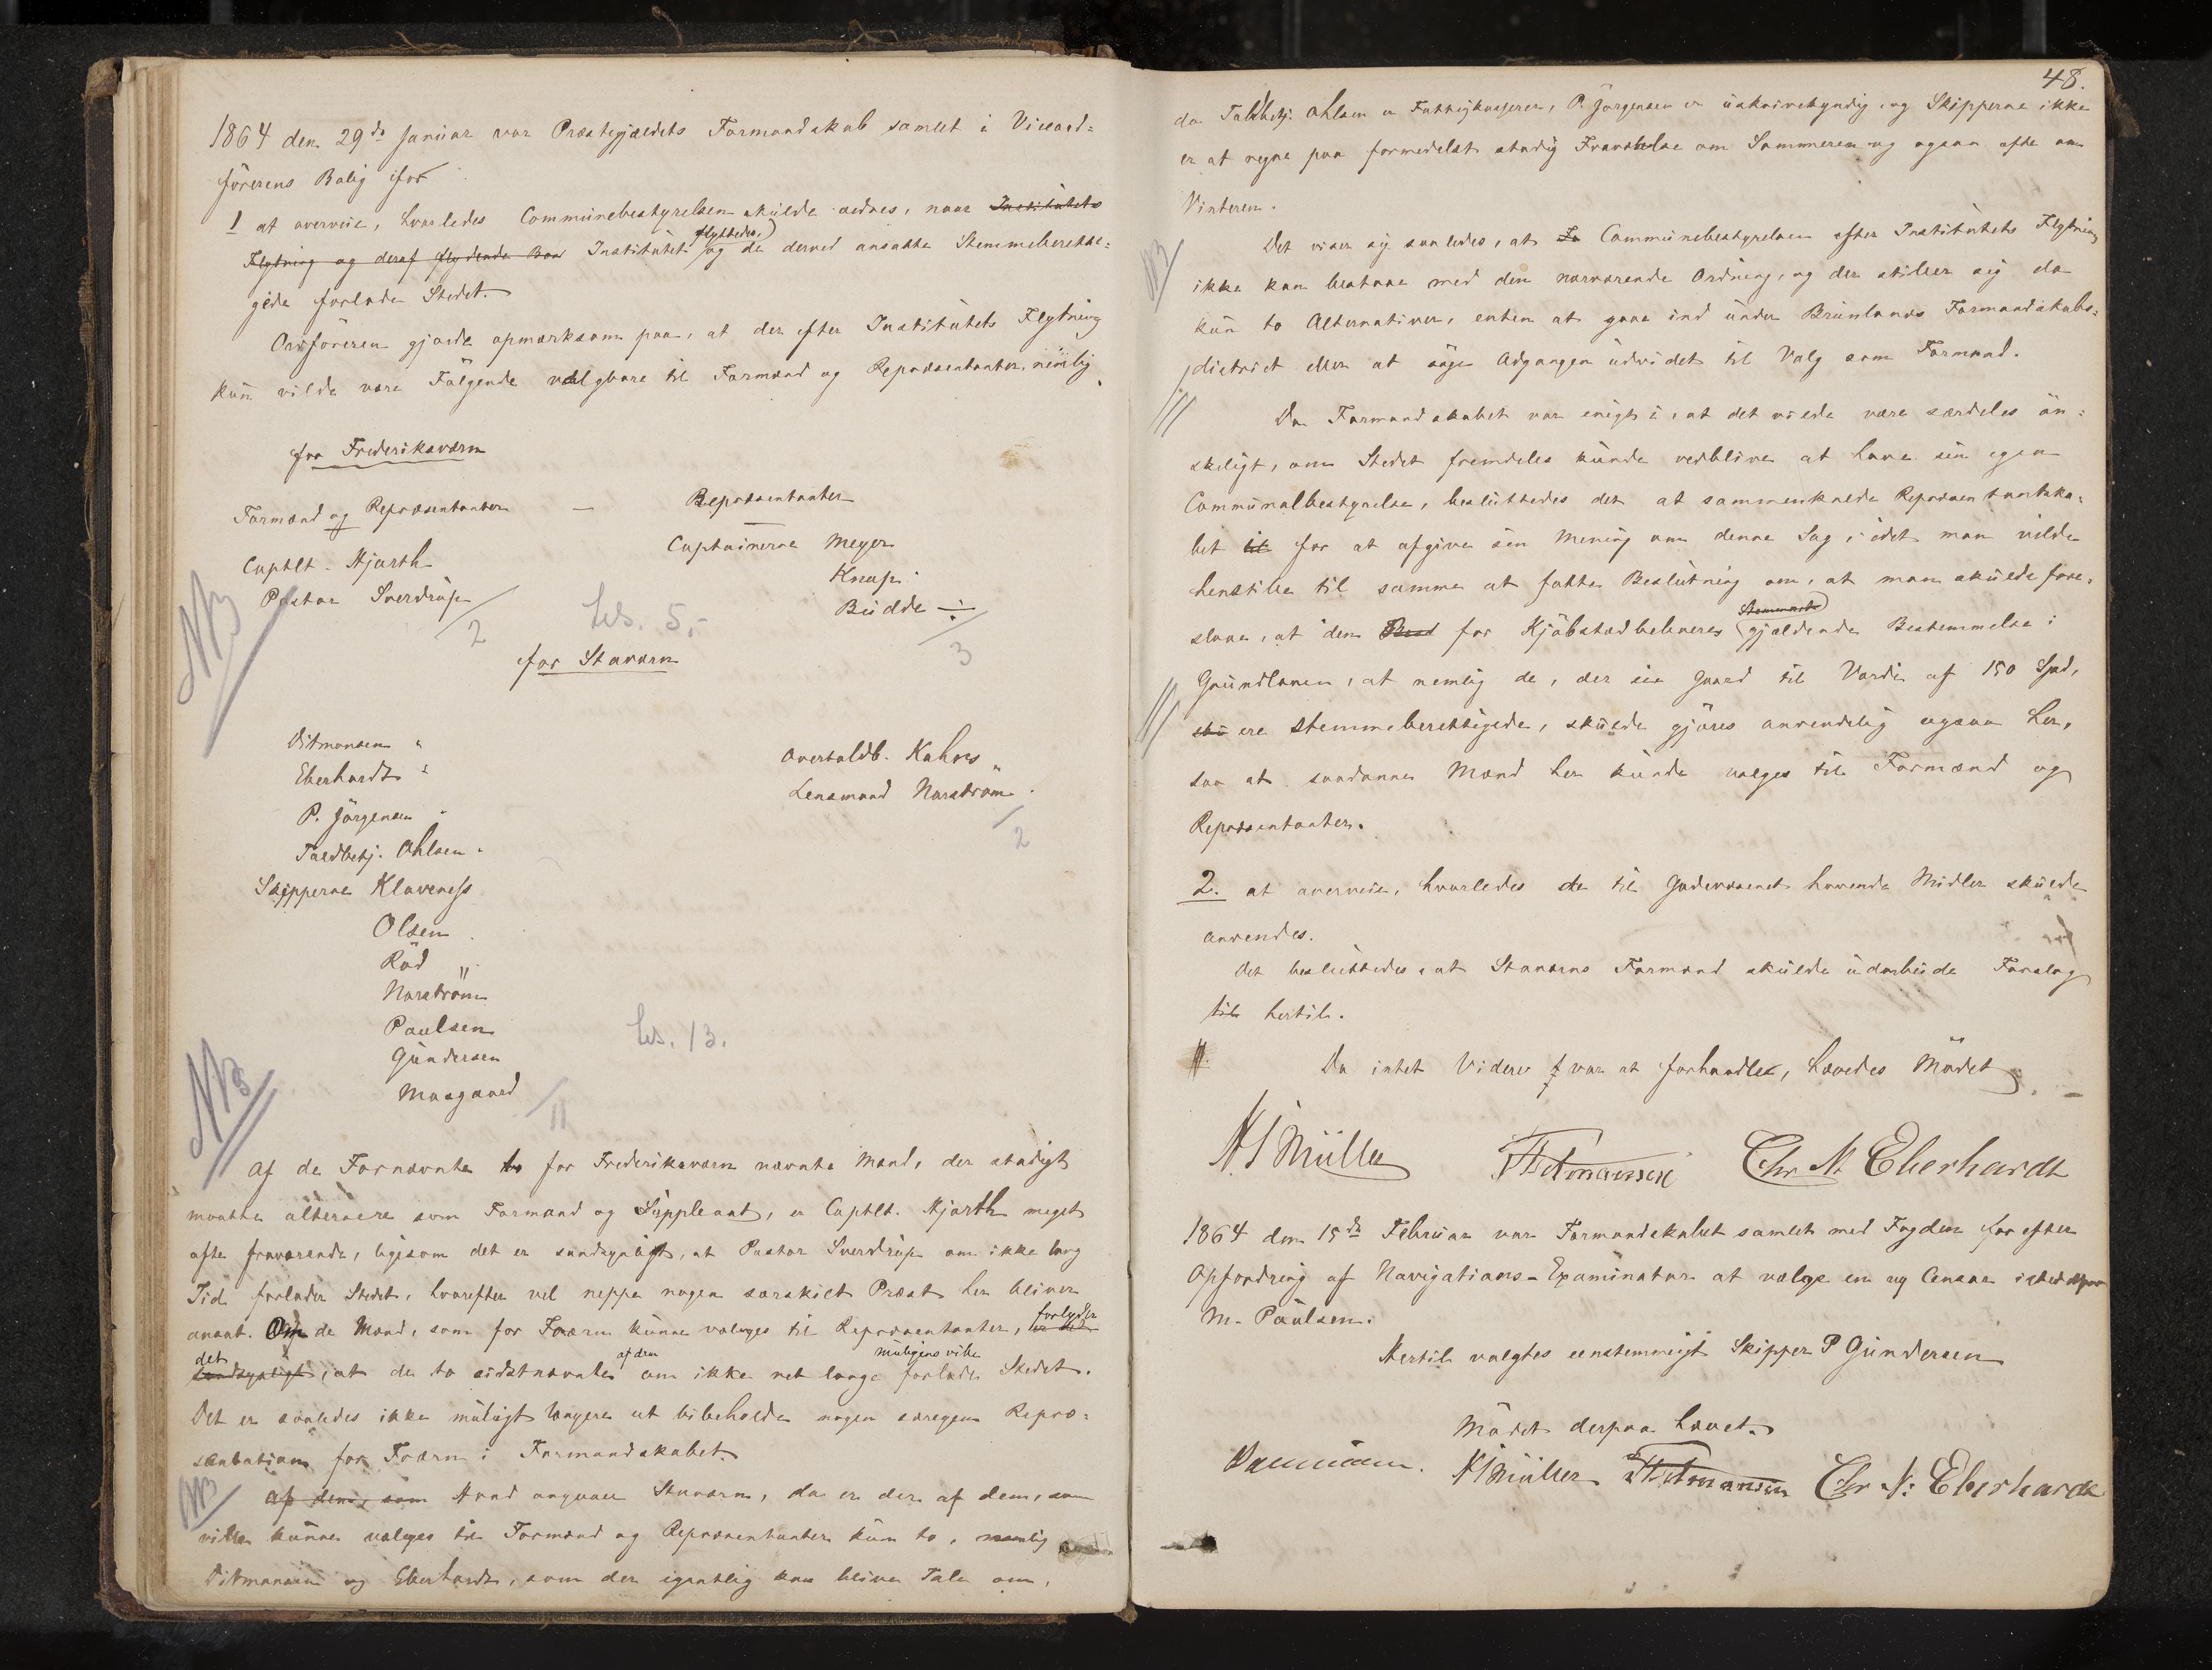 1864 den 29de Januar var Præstegjældets Formandskab samlet i Viceord=
förerens Bolig for
1 at overveie, hvorledes Communebestyrelsen skulde ordnes, naar Institutets
Flytning og deraf flydende Institutet flyttedes, og de derved ansatte Stemmeberetti=
gede forlade Stedet.
Ordföreren gjorde opmærksom paa, at der efter Institutets Flytning
kun vilde være Fölgende valgbare til Formænd og Repræsentanter, nemlig
for Frederiksværn
Formænd og Repræsentanter — Repræsentanter
Captlt. Hjorth
Pastor Sverdrup
2
Captainerne Meyer
Knap
Budde ÷
3
NB
hs. 5,-
for Staværn
Ditmansen "
Eberhardt "
P. Jörgensen "
Toldbetj. Ohlsen "
Skipperne Klaveness
Olsen
Röd "
Norström
Paulsen
Gundersen
Maagaard
11
Overtoldb. Kahrs "
Lensmand Norström
2
hs. 13.
NB
Af de Fornævnte to for Frederiksværn nævnte Mænd, der stadigt
maatte alternere som Formand og Suppleant, er Captlt. Hjorth meget
ofte fraværende, ligesom det er sandsynligt, at Pastor Sverdrup om ikke lang
Tid forlader Stedet, hvorefter vel neppe nogen særskilt Præst her bliver
ansat. Om de Mænd, som for Fværn kunne vælges til Repræsentanter, forlyder
det sandsynligt, at de to sidstnævnte af dem om ikke ret længe muligens ville forlade Stedet.
Det er saaledes ikke muligt længere at bibeholde nogen særegen Repræ=
sentation for Fværn i Formandskabet.
NB
Af dem, som Hvad angaaer Staværn, da er der af dem, som
ville kunne vælges til Formænd og Repræsentanter kun to, nemlig
Ditmansen og Eberhardt, som der egentlig kan blive Tale om,
48.
da Toldbetj. Ohlsen er Fattigkasserer, P. Jörgensen er uskrivekyndig, og Skipperne ikke
er at regne paa formedelst stadig Fraværelse om Sommeren og ogsaa ofte om
Vinteren.
NB
Det viser sig saaledes, at Communebestyrelsen efter Institutets Flytning
ikke kan bestaae med den nærværende Ordning, og der stiller sig da
kun to Alternativer, enten at gaae ind under Brunlanes Formandskabs=
district eller at söge Adgangen udvidet til Valg som Formand.
Da Formandskabet var enigt i, at det vilde være særdeles ön=
skeligt, om Stedet fremdeles kunde vedblive at have sin egen
Communalbestyrelse, besluttedes det at sammenkalde Repræsentantska=
bet til for at afgive sin Mening om denne Sag, idet man vilde
henstille til samme at fatte Beslutning om, at man skulde fore=
slaae, at den for Kjöbstædbeboeres gjældende Bestemmelse i
Grundloven, at nemlig de, der eie Gaard til Værdi af 150 Spd,
ere stemmeberettigede, skulde gjöres anvendelig ogsaa her,
saa at saadanne Mænd her kunde vælges til Formænd og
Repræsentanter.
2. at overveie, hvorledes de til Gadevæsenet havende Midler skulde
anvendes.
Det besluttedes, at Staværns Formænd skulde udarbeide Forslag
til hertil.
Da intet Videre var at forhandle, hævedes Mödet
H Müller Ditmansen Chr. N. Eberhardt
1864 den 15de Februar var Formandskabet samlet med Fogden for efter
Opfordring af Navigations-Examinator at vælge en ny Censor istedetfor
M. Paulsen.
Hertil valgtes eenstemmigt Skipper P Gundersen
Mödet derpaa hævet.
H Müller Ditmansen Chr. N. Eberhardt